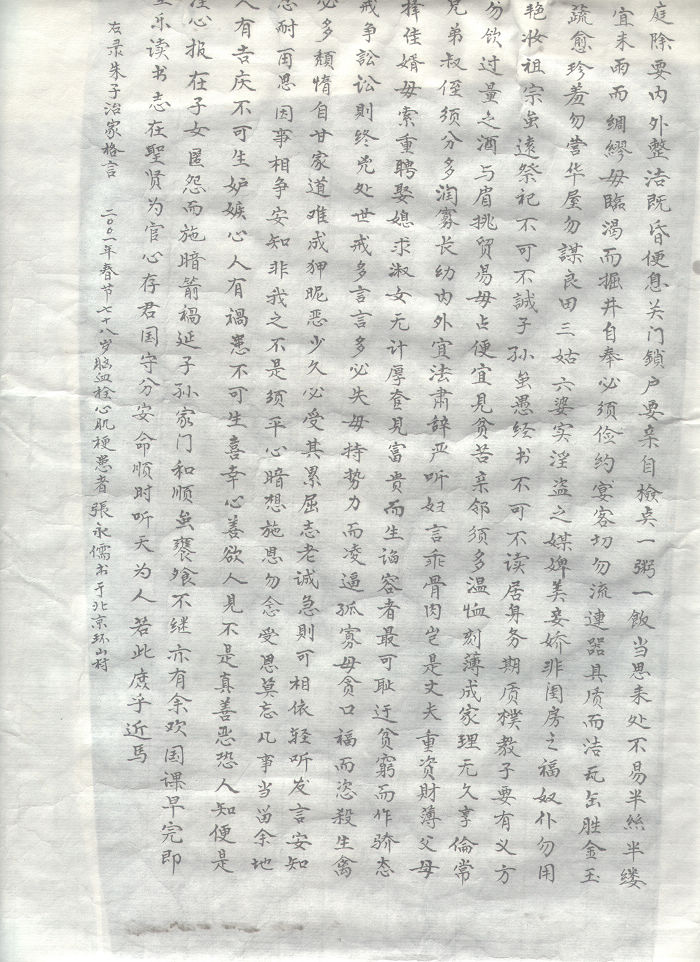 庭除要内外整洁既昏便息关门鎖户要亲自檢点一粥一飯当思来处不易半絲半缕
宜未雨而绸繆毋臨渴而掘井自奉必须俭约宴客切勿流連器具质而洁瓦缶胜金玉
蔬愈珍羞勿营华屋勿謀良田三姑六婆实淫盗之媒婢美妾娇非闺房之福奴仆勿用
艳妝祖宗虽遠祭祀不可不誠子孙虽愚经书不可不读居身务期质樸教子要有义方
份饮过量之酒与肩挑贸易毋占便宜见贫苦亲邻须多温恤刻薄成家理无久享倫常
兄弟叔侄须分多润寡长幼内外宜法肃辞严听妇言乖骨肉岂是丈夫重資财薄父母
择佳婿毋索重聘娶媳求淑女无计厚奁见富贵而生谄容者最可耻迂贫窮而作骄态
戒争訟讼则终凶处世戒多言言多必失毋持势力而凌逼孤寡毋贪口福而恣殺生禽
必多頹惰自甘家道难成狎昵恶少久必受其累屈志老诚急则可相依轻听发言安知
忍耐再思因事相争安知非我之不是须平心暗想施恩勿念受恩莫忘凡事当留余地
人有吉庆不可生妒嫉心人有禍患不可生喜幸心善欲人见不是真善恶恐人知便是
淫心报在子女匿怨而施暗箭禍延子孙家门和顺虽饔飧不继亦有余欢国课早完即
至乐读书志在聖贤为官心存君国守分安命顺时听天为人若此庶乎近焉
右录朱子治家格言 二〇〇一年春节七十八岁脑血栓心肌梗患者張永儒书于北京环山村